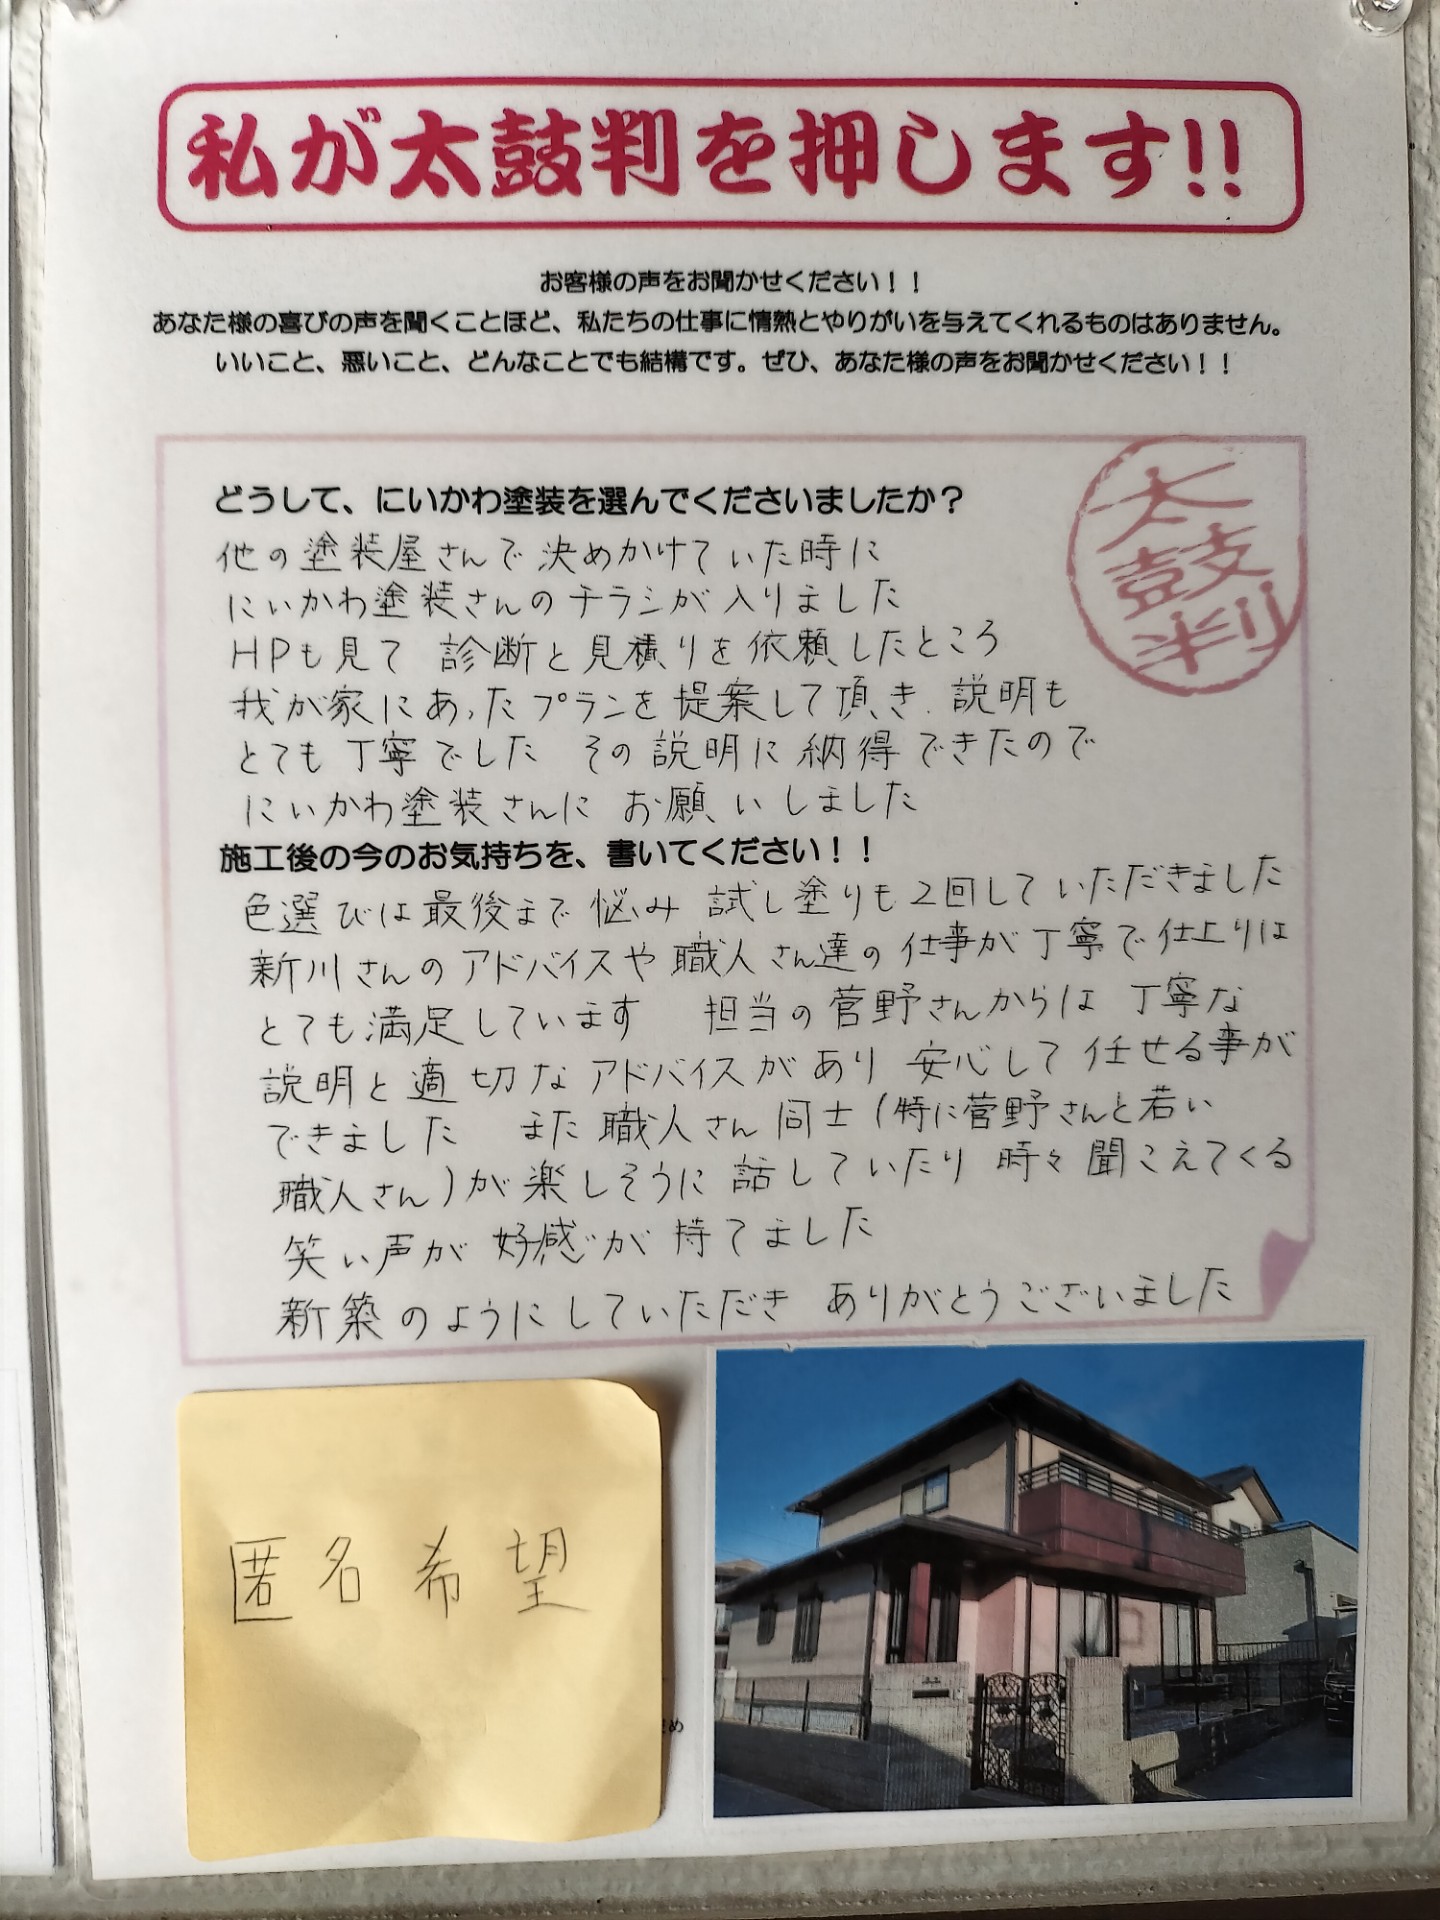 私が太鼓判を押します!!
お客様の声をお聞かせください！！
あなた様の喜びの声を聞くことほど、私たちの仕事に情熱とやりがいを与えてくれるものはありません。
いいこと、悪いこと、どんなことでも結構です。ぜひ、あなた様の声をお聞かせください！！
太鼓判
どうして、にいかわ塗装を選んでくださいましたか？
他の塗装屋さんで決めかけていた時に
にいかわ塗装さんのチラシが入りました
HPも見て 診断と見積りを依頼したところ
我が家にあったプランを提案して頂き、説明も
とても丁寧でした その説明に納得できたので
にいかわ塗装さんに お願いしました
施工後の今のお気持ちを、書いてください！！
色選びは最後まで悩み 試し塗りも2回していただきました
新川さんのアドバイスや職人さん達の仕事が丁寧で仕上りは
とても満足しています 担当の菅野さんからは 丁寧な
説明と適切なアドバイスがあり 安心して任せる事が
できました また職人さん同士(特に菅野さんと若い
職人さん)が楽しそうに話していたり 時々聞こえてくる
笑い声が好感が持てました
新築のようにしていただき ありがとうございました
匿名希望
め